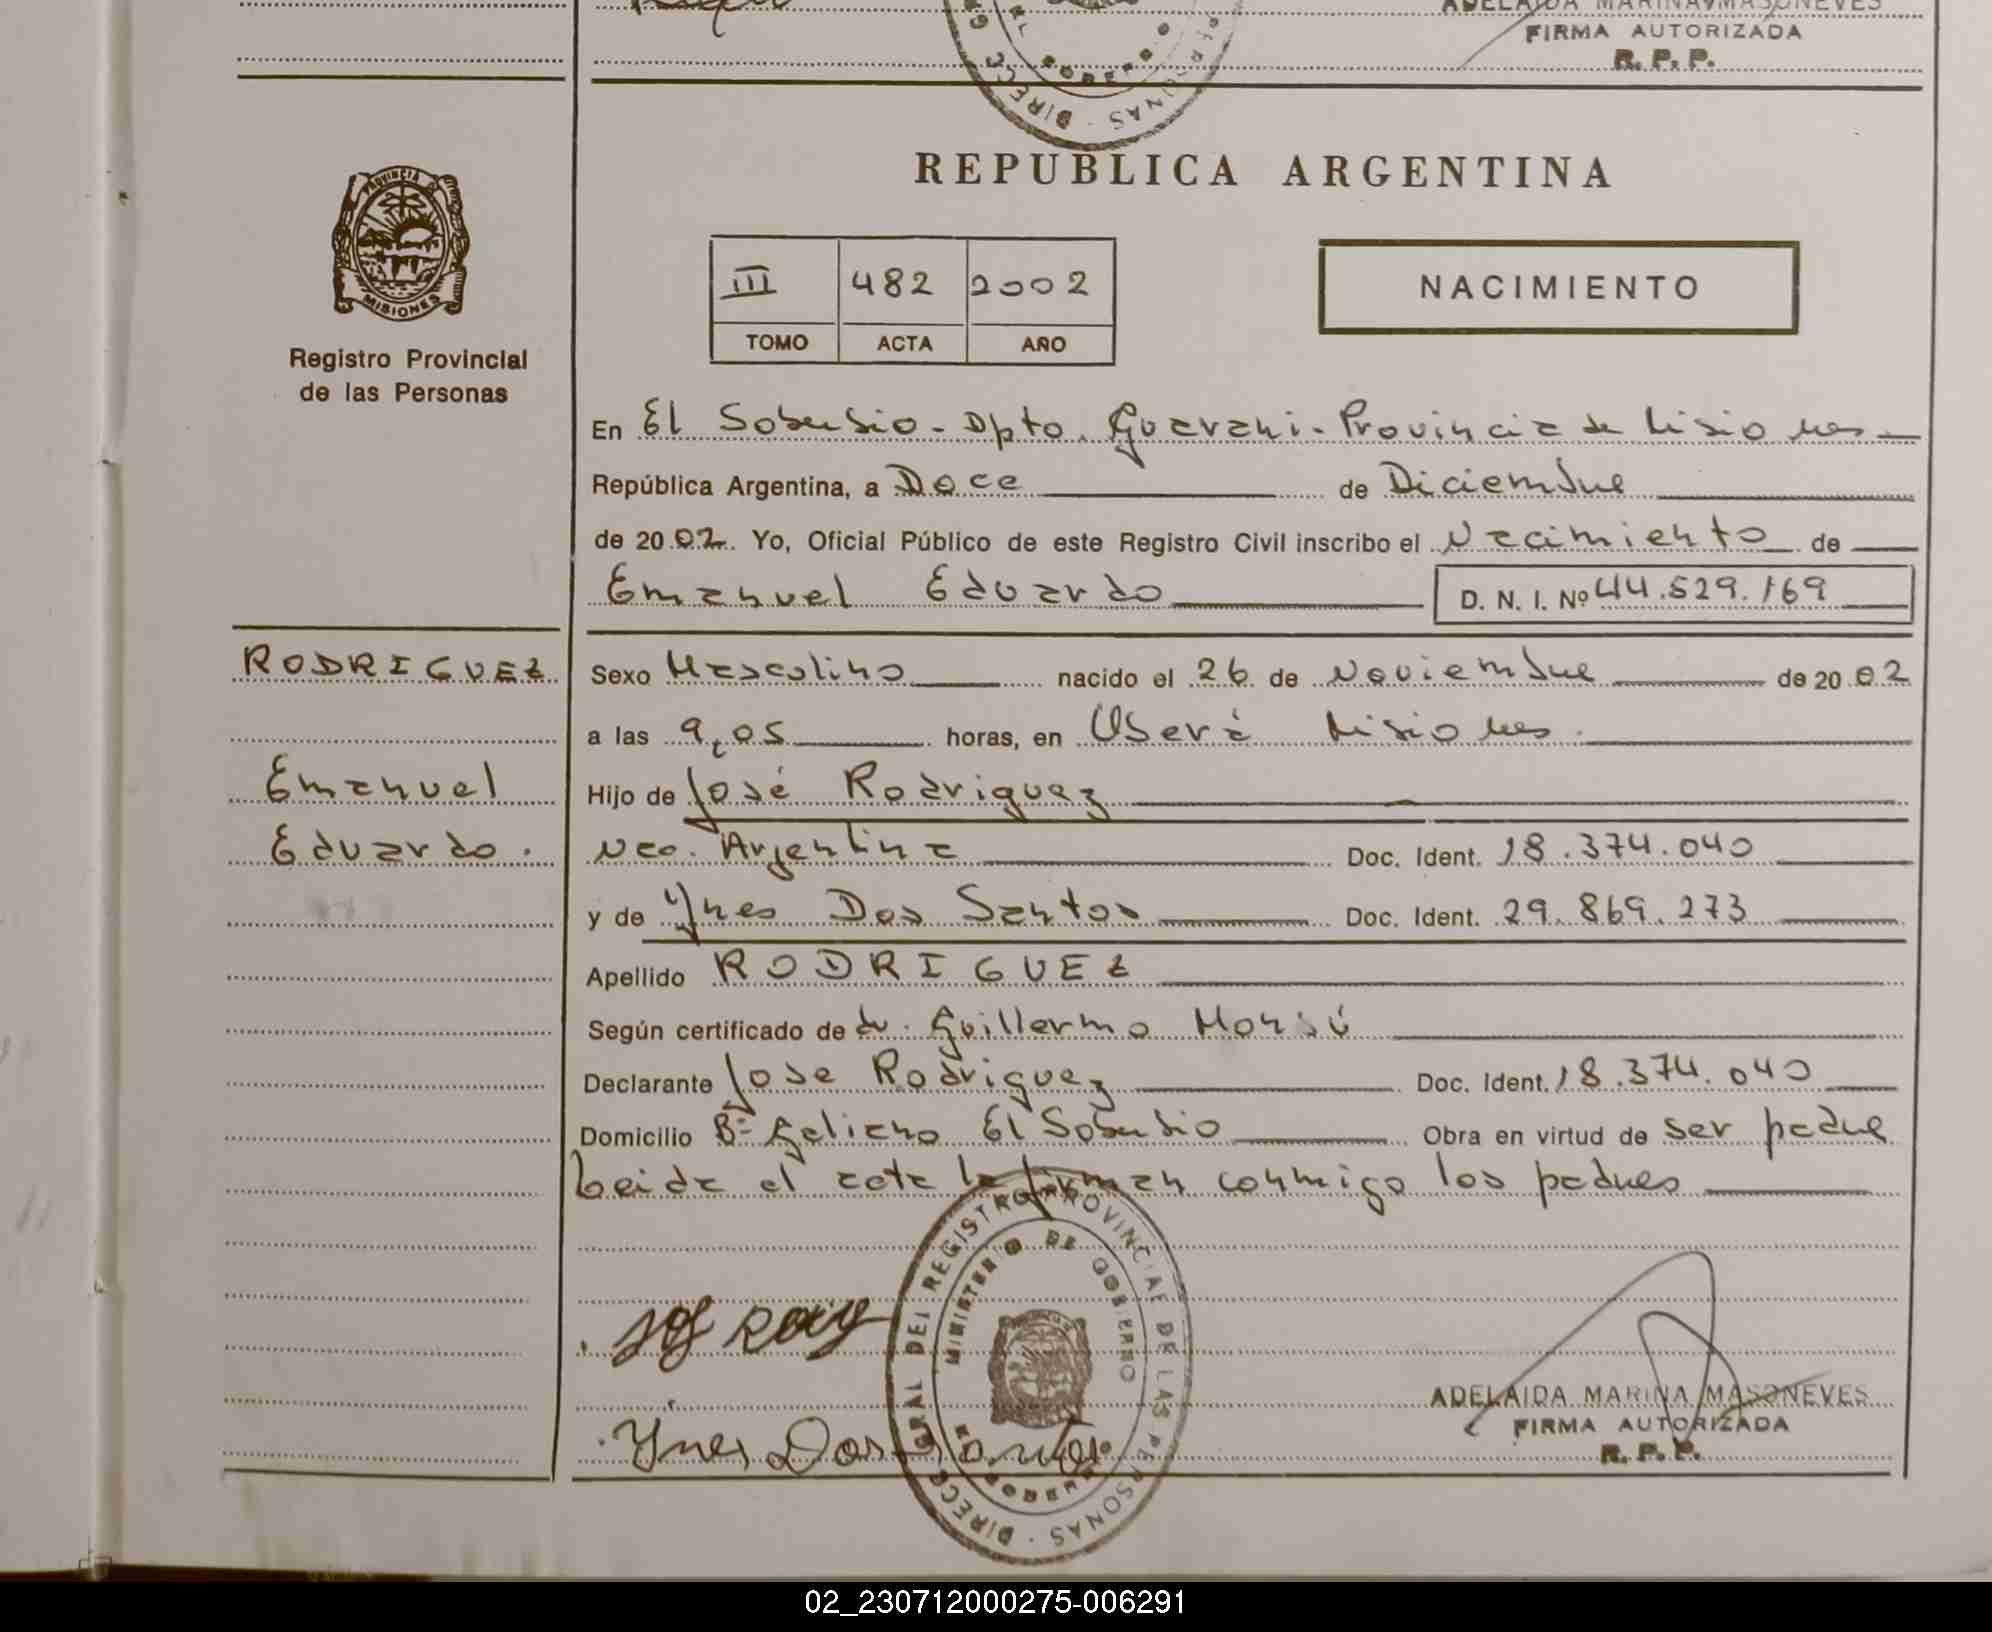 ADELAIDA MARINA MASONEVES
FIRMA AUTORIZADA
R. P. P.
PROVINCIA DE
MISIONES
Registro Provincial
de las Personas
REPUBLICA ARGENTINA
III 482 2002
TOMO ACTA AÑO
NACIMIENTO
En El Soberbio - Dpto. Guarani - Provincia de Misiones
República Argentina, a Doce de Diciembre
de 2002. Yo, Oficial Público de este Registro Civil inscribo el Nacimiento de
Emanuel Eduardo D. N. I. Nº 44.529.169
RODRIGUEZ
Emanuel
Eduardo.
Sexo Masculino nacido el 26 de Noviembre de 2002
a las 9,05 horas, en Oberá Misiones.
Hijo de José Rodriguez
Nac. Argentina Doc. Ident. 18.374.040
y de Ynes Dos Santos Doc. Ident. 29.869.273
Apellido RODRIGUEZ
Según certificado de Dr. Guillermo
Declarante Jose Rodriguez Doc. Ident. 18.374.040
Domicilio Bº Geliano El Soberbio Obra en virtud de ser padre
Leida el acta la firman conmigo los padres
DIRECC GRAL DEL REGISTRO PROVINCIAL DE LAS PERSONAS
MINISTERIO DE GOBIERNO
Ynes Dos Santos
ADELAIDA MARINA MASONEVES
FIRMA AUTORIZADA
R. P. P.
02_230712000275-006291